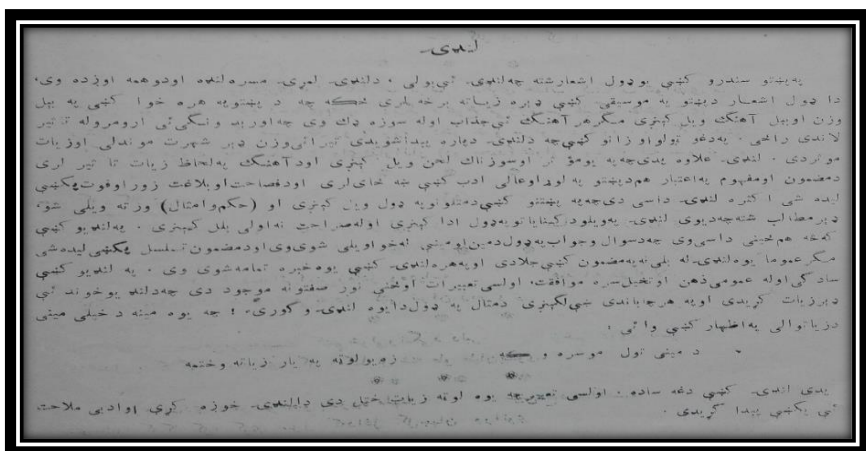 لنډۍ
په پښتو سندرو کښې یو ډول اشعار شته چه لنډۍ ئې بولی ، د لنډۍ لمړۍ مسره لنډه او دوهمه اوږده وی،
دا ډول اشعار د پښتو په موسیقی کښې ډېره زیاته برخه لری ځکه چه د پښتو په هره خوا کښې په بېل
وزن او بېل آهنګ ویل کېږی مګر هر آهنګ ئې جذاب او له سوزه ډك وی چه اورېدونکی ئې ارومرو له تاثیر
لاندی راځی . په دغو ټولو اوزانو کښې چه د لنډۍ دپاره پیدا شویدی تیراثی وزن ډېر شهرت موندلی او زیات
لنډۍ علاوه پدی چه په یو مؤثر او سوزناك لحن ویل کېږی او د آهنګ په لحاظ زیات تاثیر لری
د مضمون او مفهوم په اعتبار هم د پښتو په لوړ او عالی ادب کښې ښه ځای لری او د فصاحت او بلاغت زور او قوت پکښې
لیده شی اکثره لنډۍ داسی دی چه په پښتو کښې د متلونو په ډول ویل کېږی او (حکم و امثال) ورته ویلی شو
ډېر مطالب شته چه د یوی لنډۍ په ویلو د کنایاتو په ډول ادا کېږی او له صراحت نه اولی بلل کېږی . په لنډیو کښې
ځینی داسی وی چه د سوال و جواب په ډول د مین او مینی له خوا ویلی شوی وی او د مضمون تسلسل پکښې لیده شی
مګر عموما یوه لنډۍ له بلی نه په مضمون کښې جلا دی او په هره لنډۍ کښې یوه خبره تمامه شوی وی . په لنډیو کښې
سادګی او له عمومی ذهن او تخیل سره موافقت، اولسی تعبیرات او ځنی نور صفتونه موجود دی چه د لنډیو خوند ئې
ډېر زیات کړیدی او په هر چا باندی ښی لګېږی د مثال په ډول دا یوه لنډۍ وګورۍ ؛ چه یوه مینه د خپلی مینی
د زیاتوالی په اظهار کښې وائی :
د مینی تول مو سره وکه زه یو لوټه په یار زیاته وختمه
پدی لنډۍ کښې دغه ساده ، اولسی تعبیر چه یوه لوټه زیات ختل دی دا لنډۍ خوږه کړی او ادبی ملاحت
ئې پکښې پیدا کړیدی .